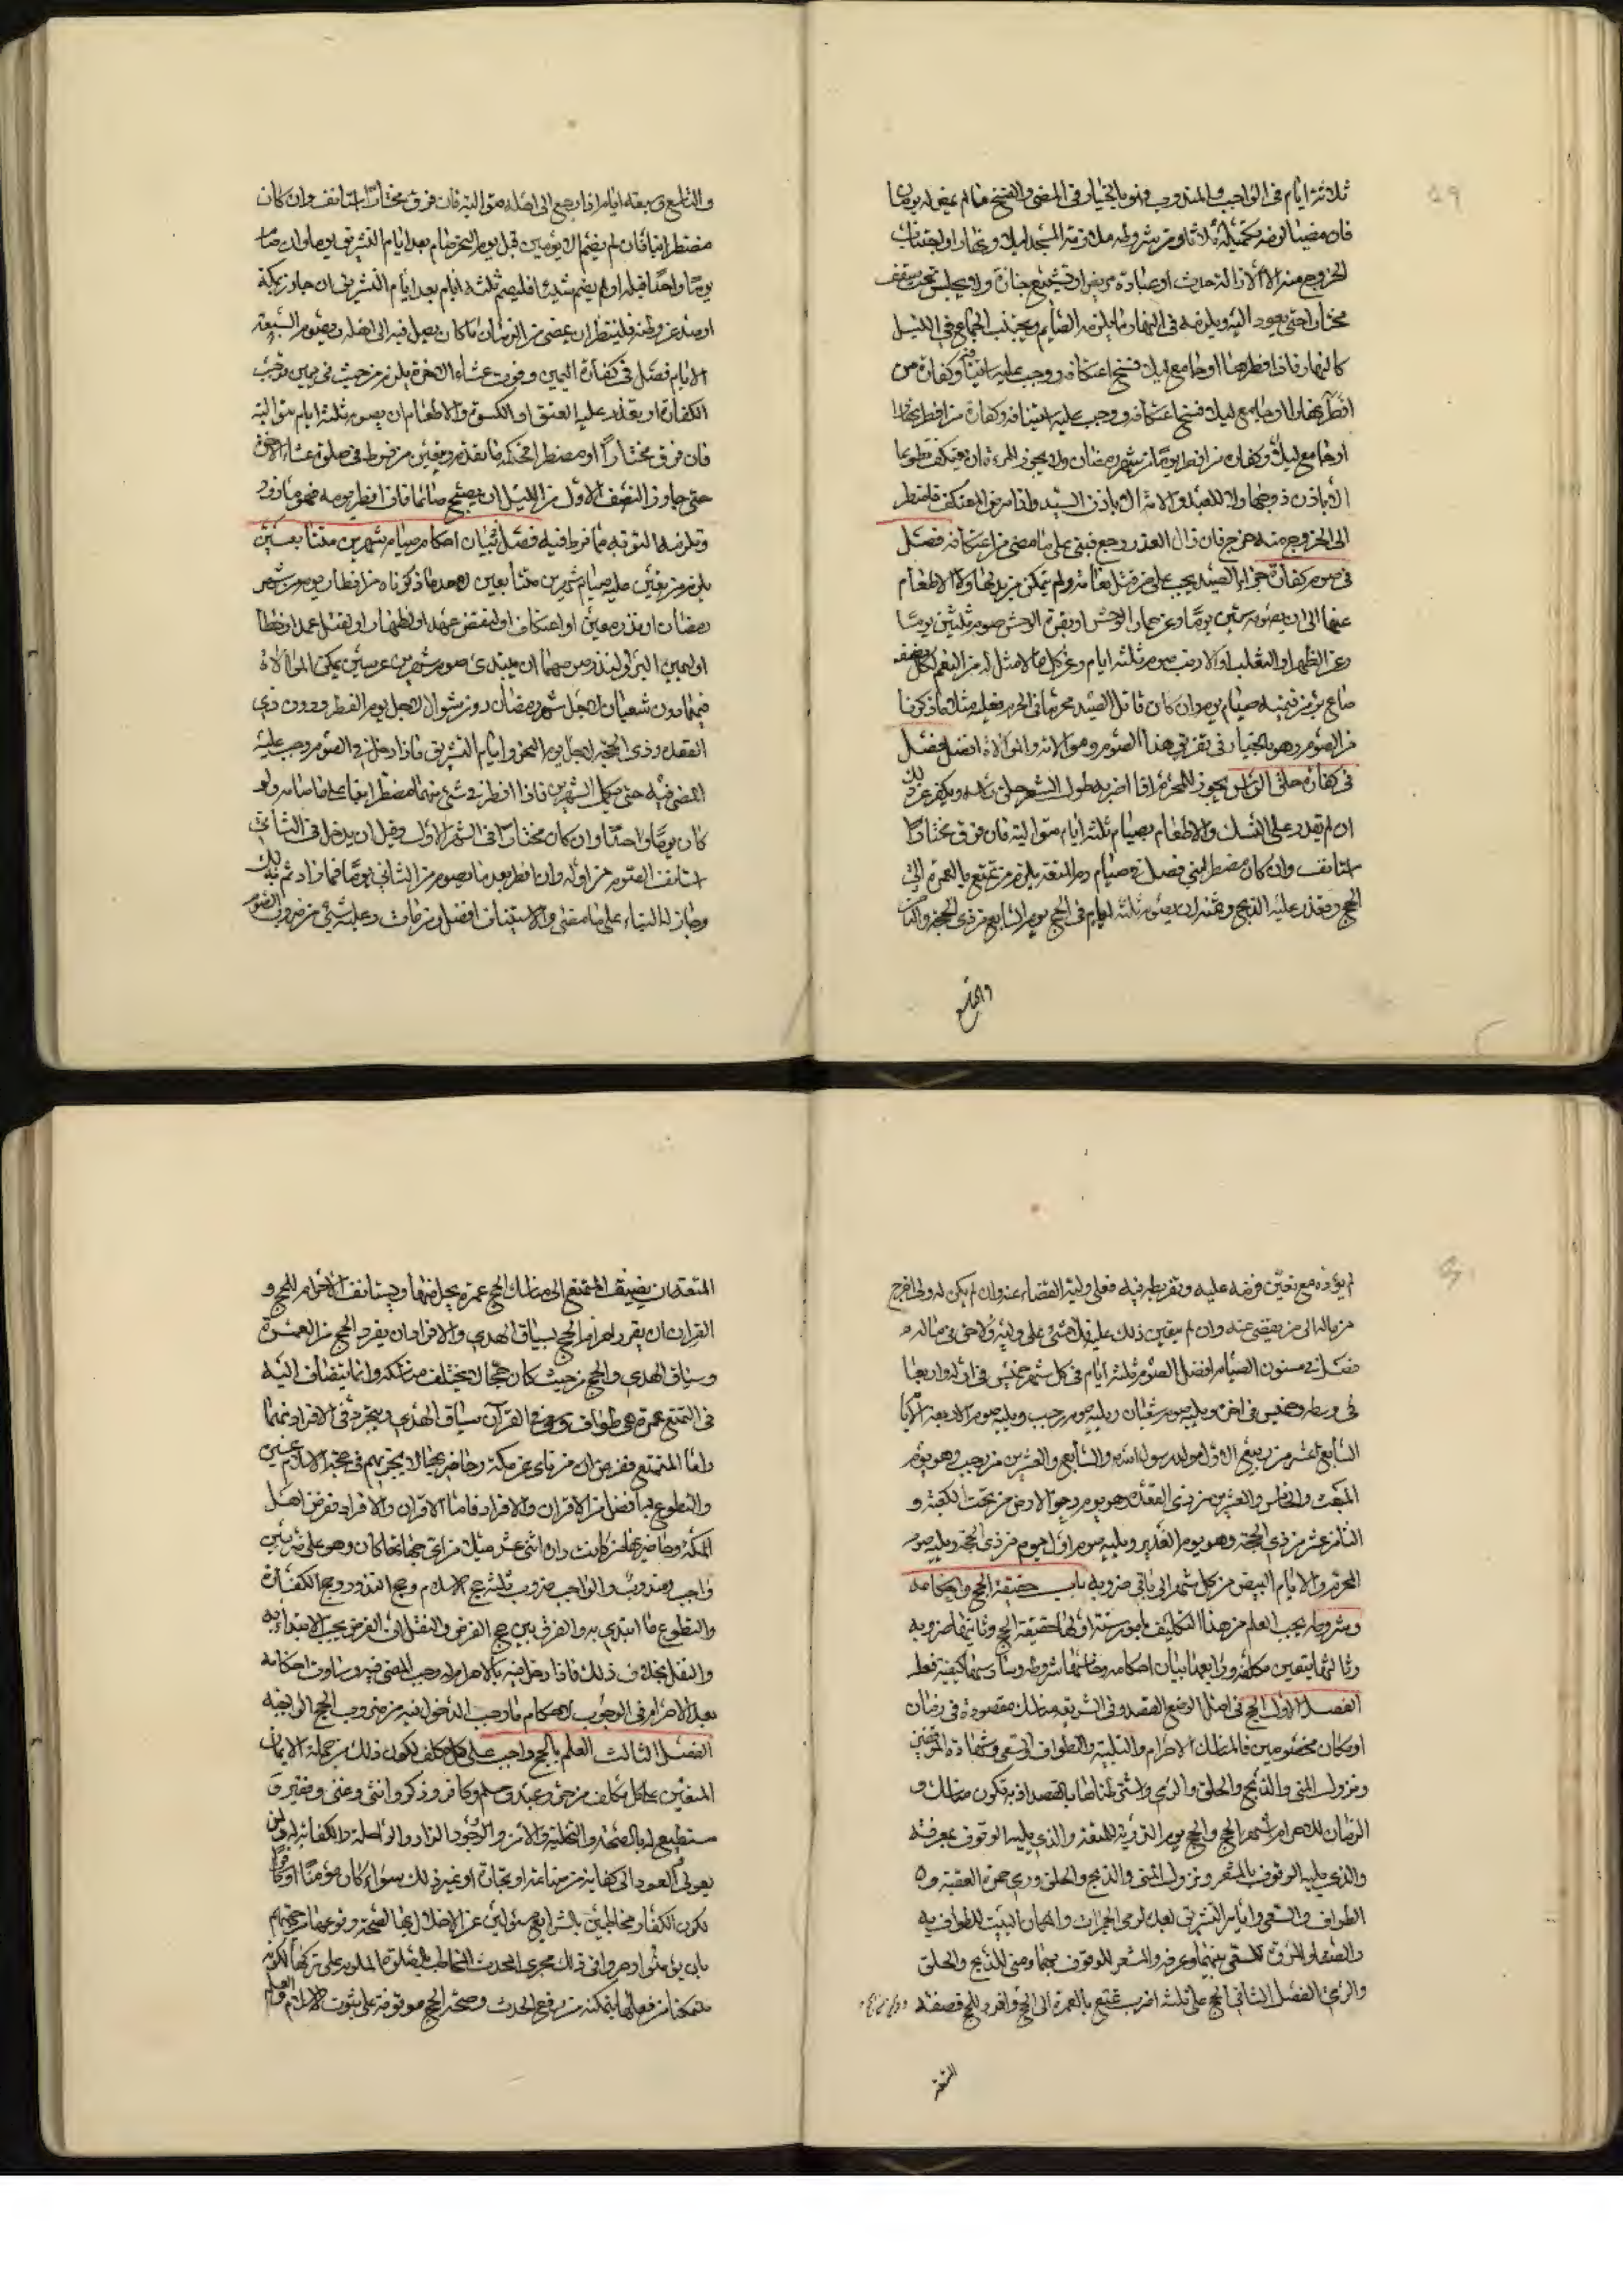 ٥٩
ثلاثة ايام فى الواجب والمندوب وهو بالخيار فى المضى والفسخ ما لم يمض له يومان
فان مضيا لزمه تكميله ثلاثا ومن شروطه ملازمة المسجد ليلا ونهارا واجتناب
الخروج منه الا لازالة حدث او عيادة مريض او تشييع جنازة ولا يجلس تحت سقف
مختارا حتى يعود اليه ويلزمه فى النهار ما يلزم الصايم ويجتنب الجماع فى الليل
كالنهار فاذا افطر نهارا او جامع ليلا فسخ اعتكافه ووجب عليه استينافه وكفارة من
افطر نهارا او جامع ليلا فسخ اعتكافه ووجب عليه استينافه وكفارة من افطر نهارا
او جامع ليلا وكفارة من افطر يوما من شهر رمضان ولا يجوز للمرءة ان تعتكف تطوعا
الا باذن زوجها ولا للعبد والامة الا باذن السيد واذا مرض المعتكف فاضطر
الى الخروج منه خرج فان زال العذر رجع فبنى على ما مضى من اعتكافه فصل
فى صوم كفارة جزاء الصيد يجب على من قتل نعامة ولم يتمكن من بدنها ولا الاطعام
عنها الى ان يصوم ستين يوما وعن حمار الوحش او بقرة الوحش صوم ثلثين يوما
وعن الظبى او الثعلب او الارنب صوم ثلثة ايام وعن كل ما لا مثل له من النعم لكل نصف
صاع بر من قيمته صيام يوم وان كان قاتل الصيد محرما فى الحرم فعليه مثلا ما ذكرنا
من الصوم وهو بالخيار فى تفريق هذا الصوم وموالاته والموالاة افضل فصل
فى كفارة حلق الراس يجوز للمحرم اذا اضر به طول الشعر حلق راسه ويكفر عن ذلك
ان لم يقدر على النسك والاطعام بصيام ثلثة ايام متوالية فان فرق مختارا
استانف وان كان مضطرا بنى فصل فى صيام دم المتعة يلزم من تمتع بالعمرة الى
الحج وتعذر عليه الذبح وثمنه ان يصوم ثلثة ايام فى الحج يوم السابع من ذى الحجة والثامن
والتاسع
والتاسع وسبعة ايام اذا رجع الى اهله متوالية فان فرق مختارا استانف وان كان
مضطرا بنا فان لم يصم الا يومين قبل يوم النحر صام بعد ايام التشريق يوما وان صام
يوما واحدا قبله او لم يصم شيئا فليصم ثلثة ايام بعد ايام التشريق ان جاوز بمكة
او صد عن وطنه فلينتظر ان يمضى من الزمان ما كان يصل فيه الى اهله ويصوم السبعة
الايام فصل فى كفارة اليمين وفوت عشاء الاخرة يلزم من حنث فى يمين توجب
الكفارة او يتعذر عليه العتق او الكسوة والاطعام ان يصوم ثلثة ايام متوالية
فان فرق مختارا او مضطرا فحكمه ما تقدم ويتعين من فرط فى صلوة عشاء الاخرة
حتى جاوز النصف الاول من الليل ان يصبح صائما فان افطر يومه فهو مازور
وتلزمه التوبة مما فرط فيه فصل فى بيان احكام صيام شهرين متتابعين
يلزم من تعين عليه صيام شهرين متتابعين لاحد ما ذكرناه من افطار يوم من شهر
رمضان او نذر معين او اعتكاف او لنقض عهد او لظهار او لقتل عمد او خطا
او ليمين البراءة او لنذر صومهما ان يبتدى صوم شهرين عربيين يمكن الموالاة
فيهما دون شعبان لاجل شهر رمضان ودون شوال لاجل يوم الفطر ودون ذى
القعده وذى الحجة لاجل يوم النحر وايام التشريق فاذا دخل فى الصوم وجب عليه
المضى فيه حتى يكمل الشهرين فاذا افطر فى شئ منهما مضطرا بنا على ما صامه ولو
كان يوما واحدا وان كان مختارا فى الشهر الاول وقبل ان يدخل فى الثانى
استانف الصوم من اوله وان افطر بعد ما يصوم من الثانى يوما فما زاد ثم بذلك
وجاز له البناء على ما مضى والاستيناف افضل ومن مات وعليه شئ من ضروب الصوم
لم يؤده مع تعين فرضه عليه وتفريطه فيه فعلى وليه القضاء عنه وان لم يكن له ولى اخرج
من ماله الى من يقضى عنه وان لم يتعين ذلك عليه فلا شئ على وليه ولا حق فى ماله
فصل فى مسنون الصيام افضل الصوم ثلثة ايام فى كل شهر خميس فى اوله واربعا
فى وسطه وخميس فى اخره ويليه صوم شعبان ويليه صوم رجب ويليه صوم الاربعة الايام
السابع عشر من ربيع الاول مولد رسول الله والسابع والعشرين من رجب وهو يوم
المبعث والخامس والعشرين من ذى القعدة وهو يوم دحو الارض من تحت الكعبة و
الثامن عشر من ذى الحجة وهو يوم الغدير ويليه صوم اول يوم من ذى الحجة ويليه صوم
المحرم والايام البيض من كل شهر الى باقى ضروبه باب حقيقة الحج واحكامه
وشروطه يجب العلم من هذا التكليف بامور ستة اولها حقيقة الحج وثانيها ضروبه
وثالثها يتعين مكلفه ورابعها بيان احكامه وخامسها شروطه وسادسها كيفية فعله
الفصل الاول الحج فى اصل الوضع القصد وفى الشريعة مناسك مقصودة فى زمان
او مكان مخصوصين فالمناسك الاحرام والتلبية والطواف والسعى وشهادة الموقفين
ونزول المنى والذبح والحلق والرمى واشترطناها بالقصد اذ به تكون مناسك و
الزمان للاحرام شهر الحج والحج يوم التروية للمتعة والذى يليه الوقوف بعرفة
والذى يليه الوقوف بالمشعر ونزول المنى والذبح والحلق ورمى جمرة العقبة و
الطواف والسعى وايام التشريق بعده لرمى الجمرات والمكان البيت للطواف به
والصفا والمروة للسعى بينهما وعرفه والمشعر للوقوف بهما ومنى للذبح والحلق
والرمى الفصل الثانى الحج على ثلثة اضرب تمتع بالعمرة الى الحج وقران وافراد للحج فصفة
المتعة
المتعة ان يضيف المتمتع الى مناسك الحج عمرة يحل منها ويستانف الاحرام للحج و
القران ان يقرن احرام الحج بسياق الهدى والافراد ان يفرد الحج من العمرة
وسياق الهدى والحج من حيث كان حجا لا يختلف مناسكه وانما ينضاف اليه
فى التمتع عمرة هى طواف وسعى وفى القرآن سياق الهدى ويتجرد فى الافراد منهما
واما المتمتع ففرض من نأى عن مكة وحاضريها لا يجزيهم فى حجة الاسلام غيره
والتطوع بها افضل من الاقران والافراد فاما الاقران والافراد ففرض اهل
المكة وحاضريها من كانت داره اثنى عشر ميلا من اى جهاتها كان وهو على ضربين
واجب ومندوب والواجب ضروب ثلثة حج الاسلام وحج النذور وحج الكفارة
والتطوع ما ابتدى به والفرق بين حج الفرض والنفل ان الفرض يجب الابتداء به
والنفل بخلاف ذلك فاذا دخل فيه بالاحرام له وجب المضى فيه وتساوت احكامه
بعد الاحرام فى الوجوب لاحكام ما وجب الدخول فيه من ضروب الحج الواجبة
الفصل الثالث العلم بالحج واجب على كل مكلف لكون ذلك من جملة الايمان
المتعين على كل مكلف من حر وعبد ومسلم وكافر وذكر وانثى وغنى وفقير و
مستطيع له بالصحة والتخلية والامن والوجود الزاد والراحلة والكفاية له ولمن
يعول والعود الى كفاية من صناعة او تجارة او غير ذلك سواء كان مؤمنا او كافرا
لكون الكفار مخاطبين بالشرايع مسئولين عن الاخلال بها
بان يؤمنوا وجروا فى ذلك مجرى المحدث المخاطب بالصلوة الملوم على تركها لكونه
متمكنا من فعلها لتمكنه من رفع الحدث وصحة الحج موقوفة على ثبوت الاسلام والعلم